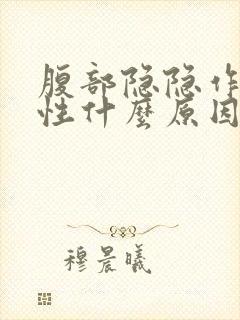 腹部隐隐作
性什麼原因
穆晨曦